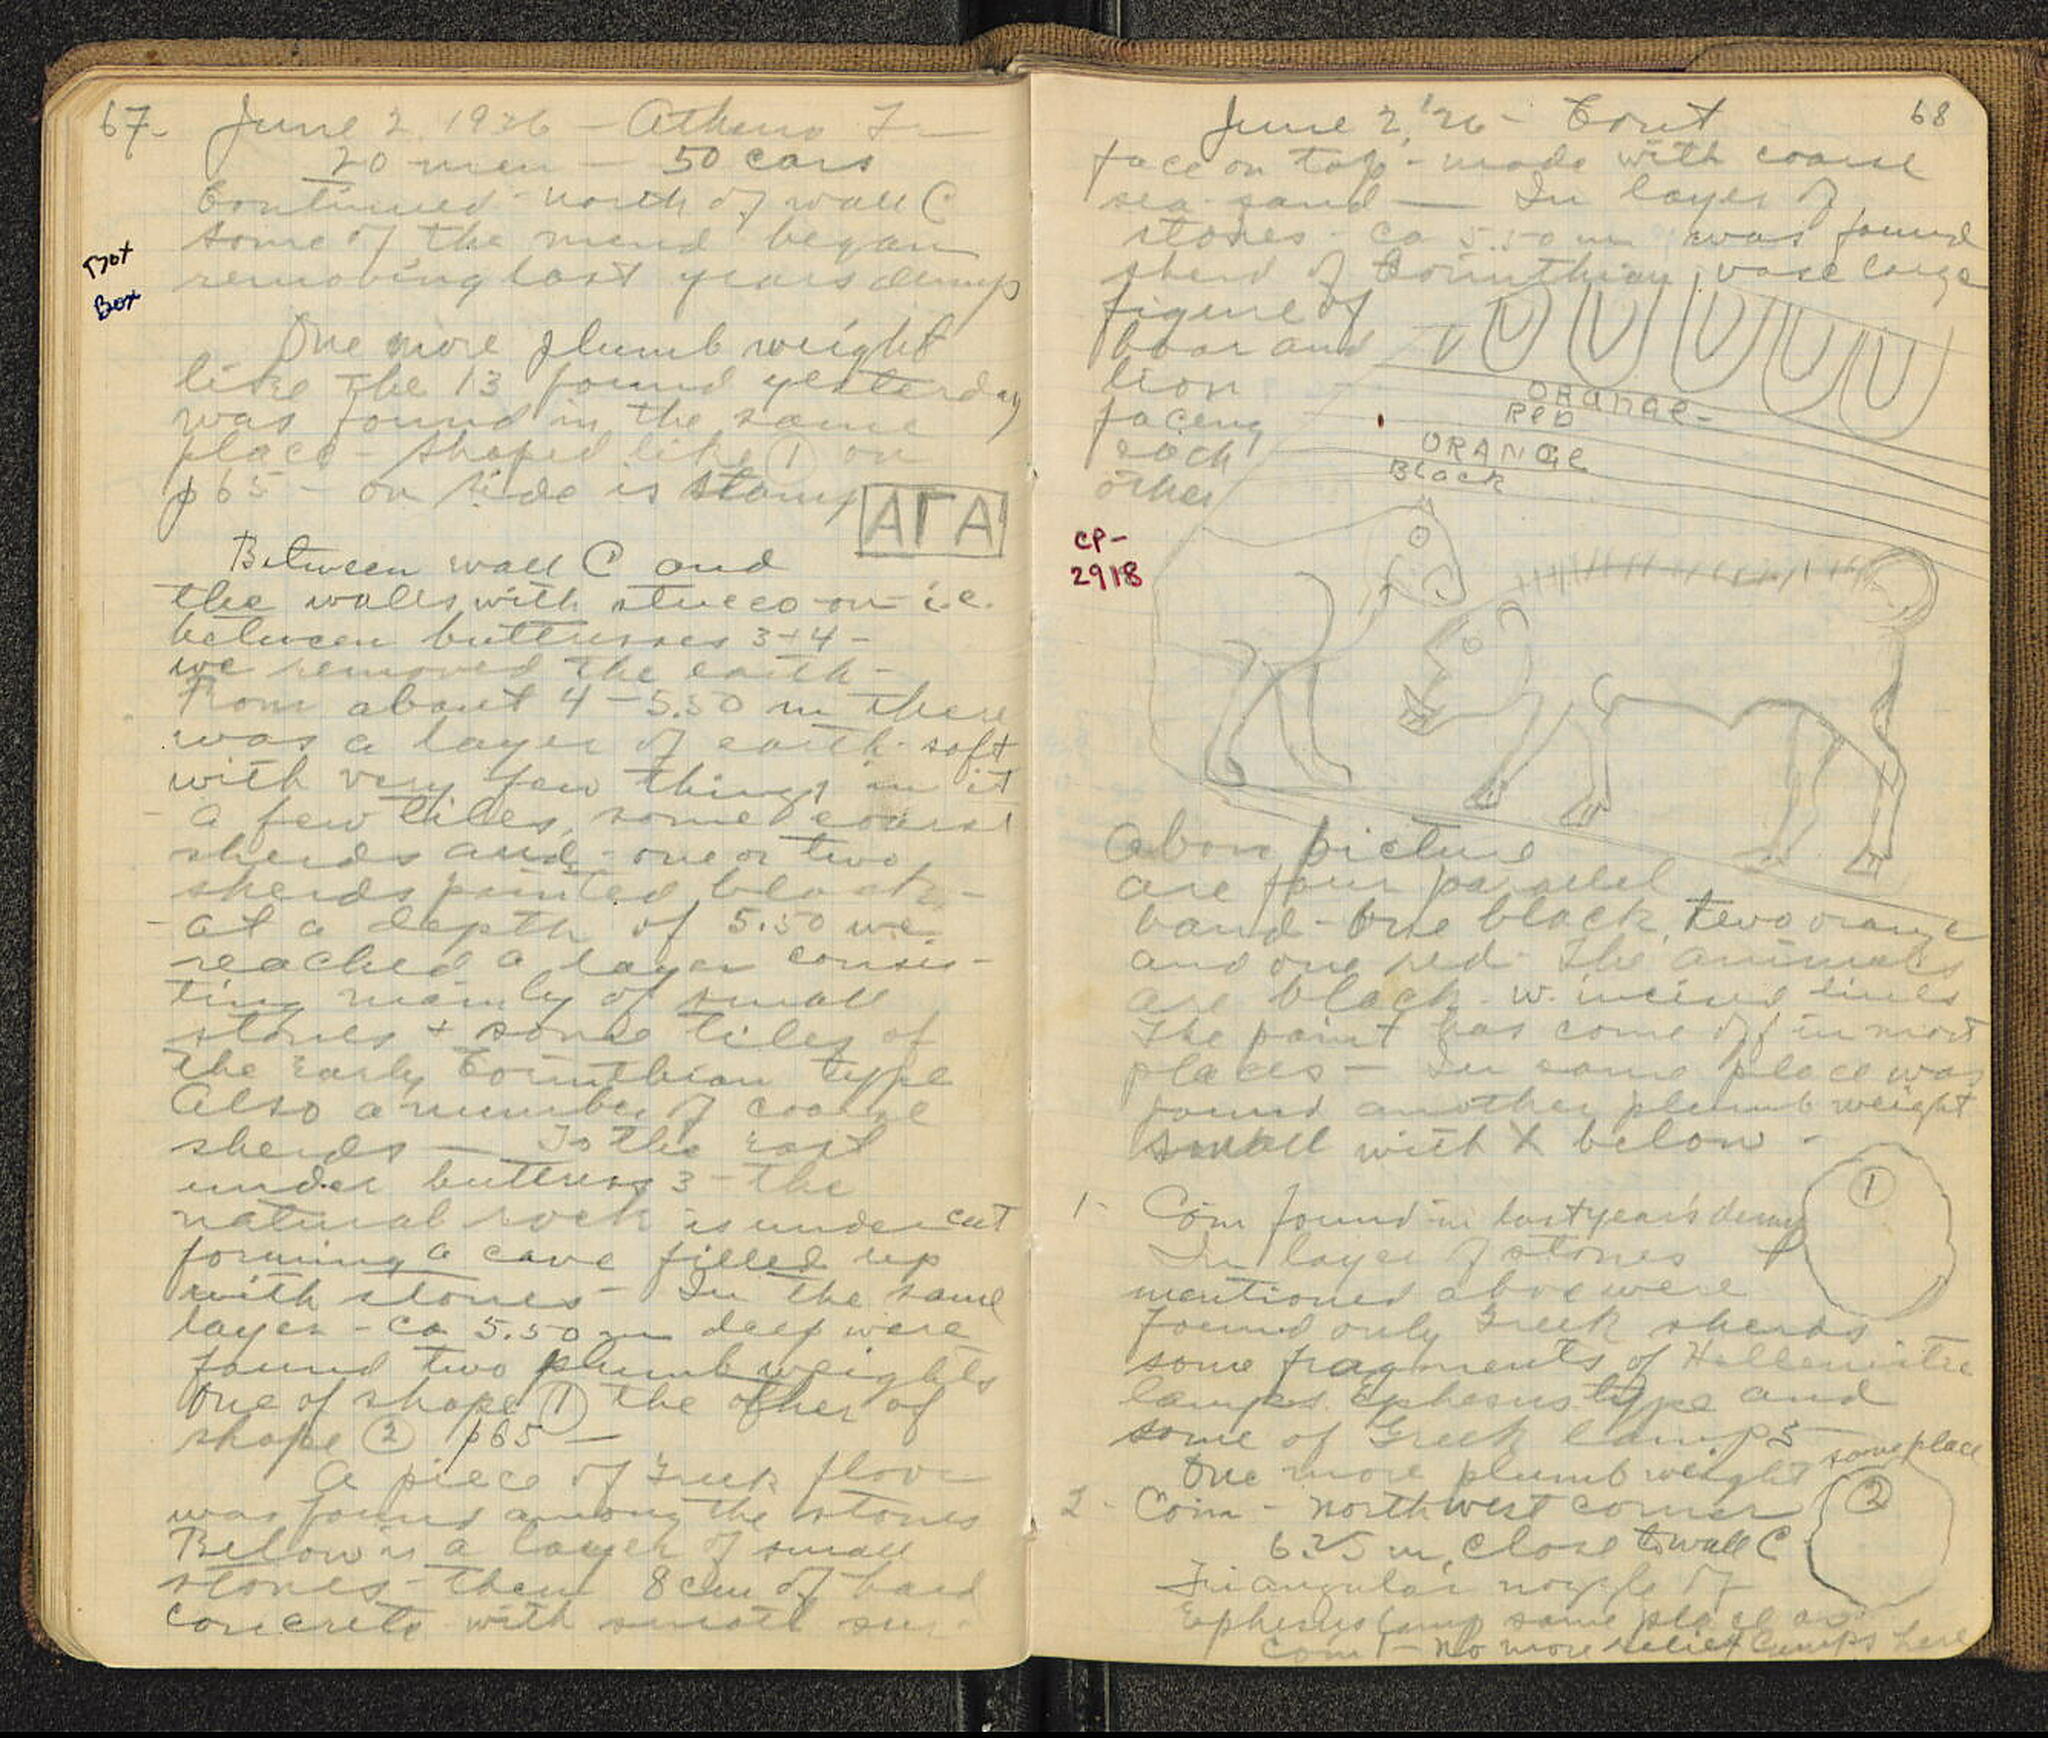 67- June 2, 1926 – Athena T–
20 men — 50 cars
Continued north of wall C
some of the men began
removing last years dump
Not
Box
One more plumb weight
like the 13 found yesterday
was found in the same
place – shaped like ① on
p 65 – on side is stamp ΑΓΑ
Between wall C and
the walls with stucco on – i.e.
between buttresses 3+4 –
we removed the earth –
From about 4 – 5.50 m there
was a layer of earth – soft
with very few things in it
– a few tiles, some coarse
sherds and – one or two
sherds painted black –
– at a depth of 5.50 we
reached a layer consis-
ting mainly of small
stones + some tiles of
the Early Corinthian type
Also a number of coarse
sherds — To the East
under buttress 3 – the
natural rock is under cut
forming a cave filled up
with stones – In the same
layer – ca 5.50 m deep were
found two plumb weights
One of shape ① the other of
shape ② p 65 —
A piece of Greek floor
was found among the stones
Below is a layer of small
stones – then 8 cm of hard
concrete with smooth sur-
June 2, '26 – Cont 68
face on top – made with coarse
sea-sand — In layer of
stones – ca 5.50 m was found
sherd of Corinthian vase large
figure of
boar and
lion
facing
each
other
ORANGE –
RED
ORANGE
Black
CP-
2918
Above picture
are four parallel
band – One black, two orange
and one red – The animals
are black – w. incised lines
The paint has come off in most
places – In same place was
found another plumb weight
small with X below –
1 - Coin found in last year's dump
①
In layer of stones
mentioned above were
found only Greek sherds –
some fragments of Hellenistic
lamps Ephesus type and
some of Greek lamps –
One more plumb weight same place
2 - Coin – Northwest corner
②
6.25 m, close to wall C
Triangular nozzle of
Ephesus lamp same place as
coin – No more relief lamps here